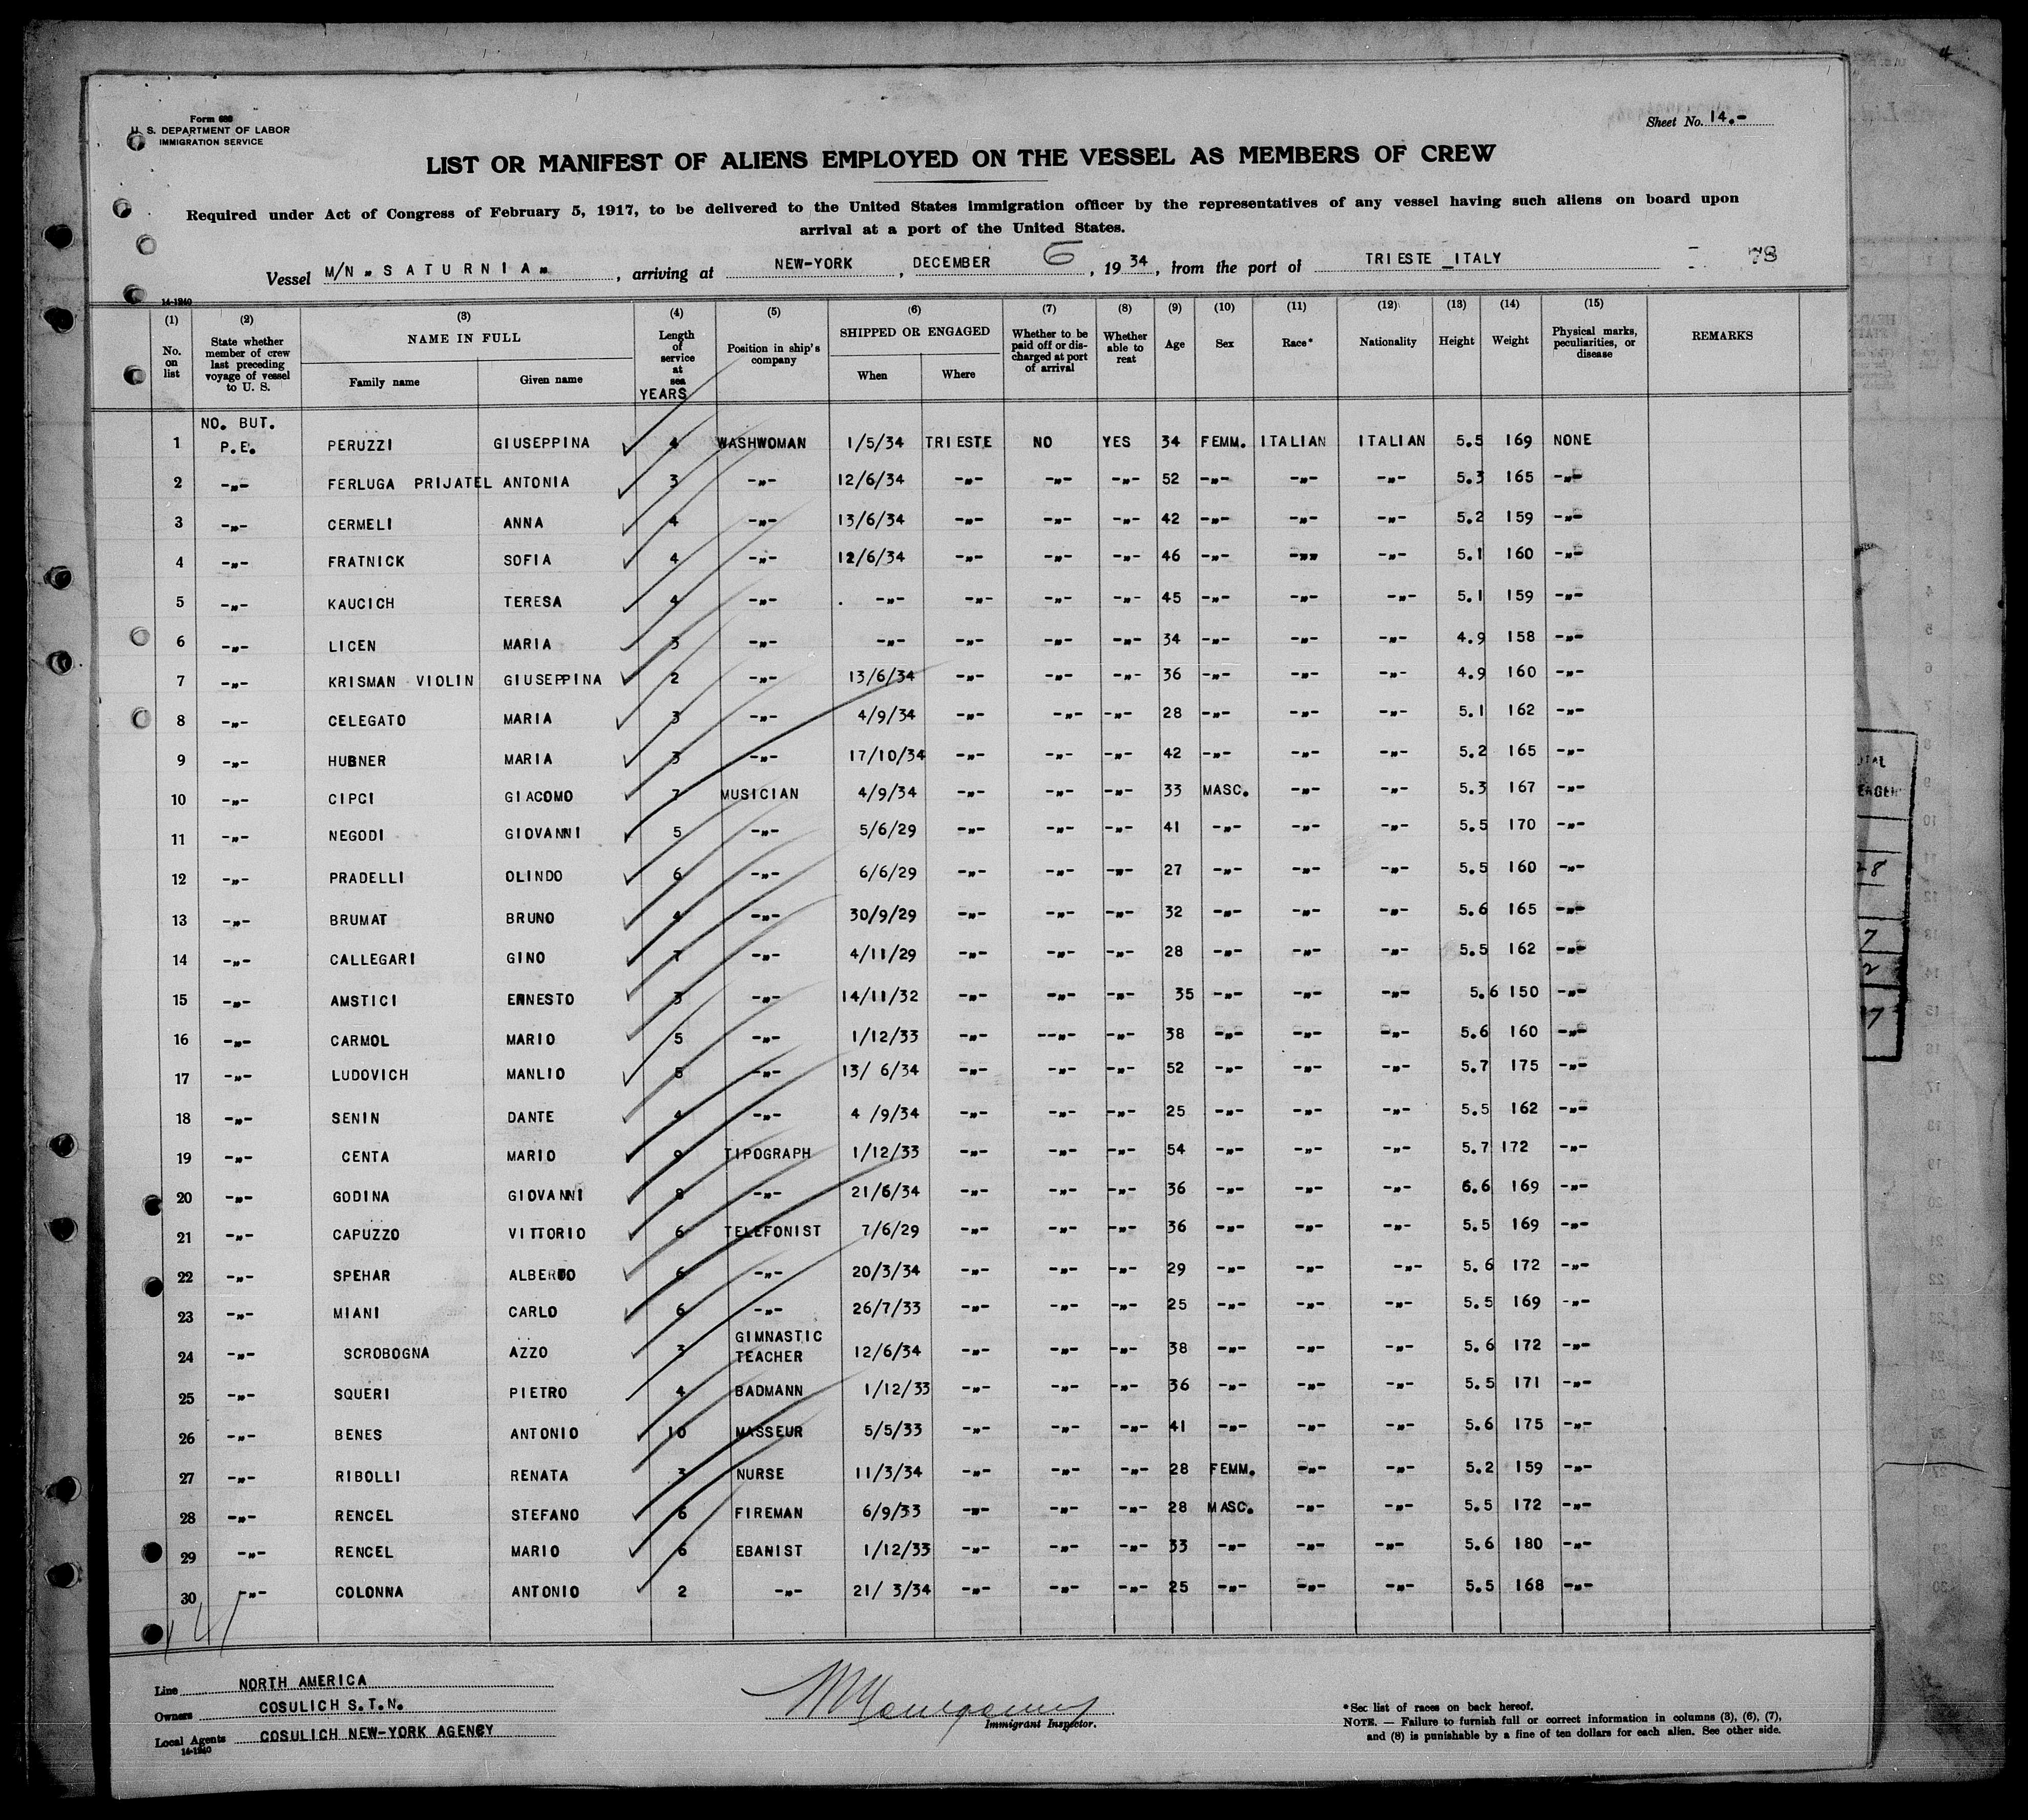 Form 680
U. S. DEPARTMENT OF LABOR
IMMIGRATION SERVICE
Sheet No. 14.-
LIST OR MANIFEST OF ALIENS EMPLOYED ON THE VESSEL AS MEMBERS OF CREW
Required under Act of Congress of February 5, 1917, to be delivered to the United States immigration officer by the representatives of any vessel having such aliens on board upon
arrival at a port of the United States.
Vessel M/N „ S A T U R N I A „ , arriving at NEW-YORK , DECEMBER 6 , 19 34 , from the port of TRIESTE _ITALY 78
14-1240
(1) (2) (3) (4) (5) (6) (7) (8) (9) (10) (11) (12) (13) (14) (15)
No. on list State whether member of crew last preceding voyage of vessel to U. S. NAME IN FULL Family name Given name Length of service at sea YEARS Position in ship's company SHIPPED OR ENGAGED When Where Whether to be paid off or discharged at port of arrival Whether able to reat Age Sex Race* Nationality Height Weight Physical marks, peculiarities, or disease REMARKS
NO. BUT.
1 P.E. PERUZZI GIUSEPPINA 4 WASHWOMAN 1/5/34 TRIESTE NO YES 34 FEMM. ITALIAN ITALIAN 5.5 169 NONE
2 -„- FERLUGA PRIJATEL ANTONIA 3 -„- 12/6/34 -„- -„- -„- 52 -„- -„- -„- 5.3 165 -„-
3 -„- CERMELI ANNA 4 -„- 13/6/34 -„- -„- -„- 42 -„- -„- -„- 5.2 159 -„-
4 -„- FRATNICK SOFIA 4 -„- 12/6/34 -„- -„- -„- 46 -„- -„„ -„- 5.1 160 -„-
5 -„- KAUCICH TERESA 4 -„- . -„- -„- -„- -„- 45 -„- -„- -„- 5.1 159 -„-
6 -„- LICEN MARIA 3 -„- -„- -„- -„- -„- 34 -„- -„- -„- 4.9 158 -„-
7 -„- KRISMAN VIOLIN GIUSEPPINA 2 -„- 13/6/34 -„- -„- -„- 36 -„- -„- -„- 4.9 160 -„-
8 -„- CELEGATO MARIA 3 -„- 4/9/34 -„- -„- -„- 28 -„- -„- -„- 5.1 162 -„-
9 -„- HUBNER MARIA 3 -„- 17/10/34 -„- -„- -„- 42 -„- -„- -„- 5.2 165 -„-
10 -„- CIPCI GIACOMO 7 MUSICIAN 4/9/34 -„- -„- -„- 33 MASC. -„- -„- 5.3 167 -„-
11 -„- NEGODI GIOVANNI 5 -„- 5/6/29 -„- -„- -„- 41 -„- -„- -„- 5.5 170 -„-
12 -„- PRADELLI OLINDO 6 -„- 6/6/29 -„- -„- -„- 27 -„- -„- -„- 5.5 160 -„-
13 -„- BRUMAT BRUNO 4 -„- 30/9/29 -„- -„- -„- 32 -„- -„- -„- 5.6 165 -„-
14 -„- CALLEGARI GINO 7 -„- 4/11/29 -„- -„- -„- 28 -„- -„- -„- 5.5 162 -„-
15 -„- AMSTICI ERNESTO 3 -„- 14/11/32 -„- -„- -„- 35 -„- -„- -„- 5.6 150 -„-
16 -„- CARMOL MARIO 5 -„- 1/12/33 -„- --„- -„- 38 -„- -„- -„- 5.6 160 -„-
17 -„- LUDOVICH MANLIO 5 -„- 13/ 6/34 -„- -„- -„- 52 -„- -„- -„- 5.7 175 -„-
18 -„- SENIN DANTE 4 -„- 4 /9/34 -„- -„- -„- 25 -„- -„- -„- 5.5 162 -„-
19 -„- CENTA MARIO 9 TIPOGRAPH 1/12/33 -„- -„- -„- 54 -„- -„- -„- 5.7 172 -„-
20 -„- GODINA GIOVANNI 8 -„- 21/6/34 -„- -„- -„- 36 -„- -„- -„- 6.6 169 -„-
21 -„- CAPUZZO VITTORIO 6 TELEFONIST 7/6/29 -„- -„- -„- 36 -„- -„- -„- 5.5 169 -„-
22 -„- SPEHAR ALBERTO 6 -„- 20/3/34 -„- -„- -„- 29 -„- -„- -„- 5.6 172 -„-
23 -„- MIANI CARLO 6 -„- 26/7/33 -„- -„- -„- 25 -„- -„- -„- 5.5 169 -„-
24 -„- SCROBOGNA AZZO 3 GIMNASTIC TEACHER 12/6/34 -„- -„- -„- 38 -„- -„- -„- 5.6 172 -„-
25 -„- SQUERI PIETRO 4 BADMANN 1/12/33 -„- -„- -„- 36 -„- -„- -„- 5.5 171 -„-
26 -„- BENES ANTONIO 10 MASSEUR 5/5/33 -„- -„- -„- 41 -„- -„- -„- 5.6 175 -„-
27 -„- RIBOLLI RENATA 3 NURSE 11/3/34 -„- -„- -„- 28 FEMM. -„- -„- 5.2 159 -„-
28 -„- RENCEL STEFANO 6 FIREMAN 6/9/33 -„- -„- -„- 28 MASC. -„- -„- 5.5 172 -„-
29 -„- RENCEL MARIO 6 EBANIST 1/12/33 -„- -„- -„- 33 -„- -„- -„- 5.6 180 -„-
30 -„- COLONNA ANTONIO 2 -„- 21/ 3/34 -„- -„- -„- 25 -„- -„- -„- 5.5 168 -„-
Line NORTH AMERICA
Owners COSULICH S.T.N.
Local Agents COSULICH NEW-YORK AGENCY
14-1240
Immigrant Inspector.
*See list of races on back hereof.
NOTE. — Failure to furnish full or correct information in columns (3), (6), (7),
and (8) is punishable by a fine of ten dollars for each alien. See other side.